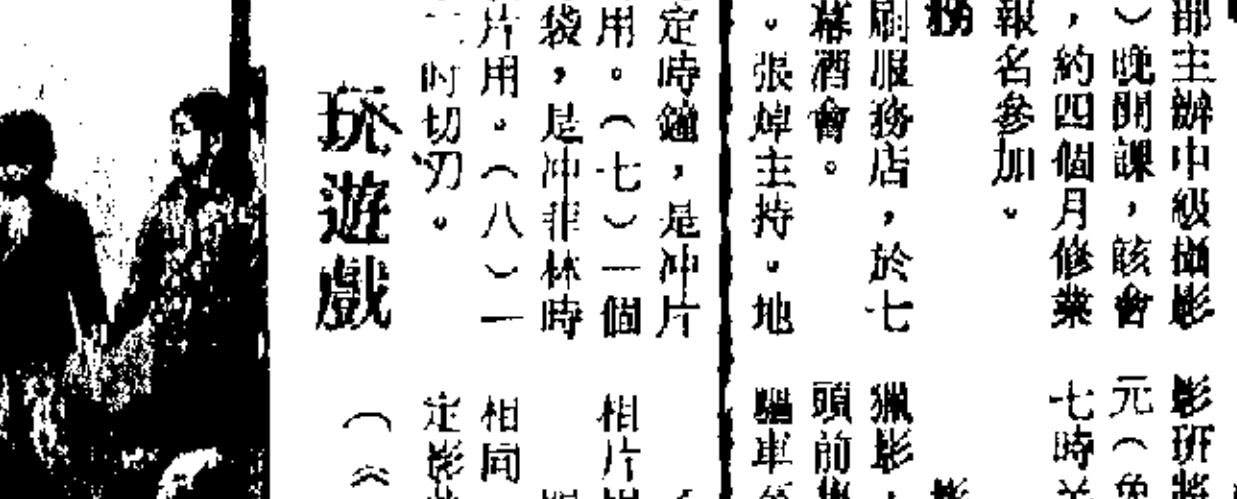 部主辦中級攝影
）晚開課，該會
，約四個月修業
報名參加。
務
刷服務店，於七
幕酒會。
。張焯主持。地
定時鐘，是冲片
用。（七）一個
袋，是冲菲林時
片用。（八）一
时切刀。
玩遊戲
影班將
元（免
七時
獵影
頭前
驅車
相片
相同
定影